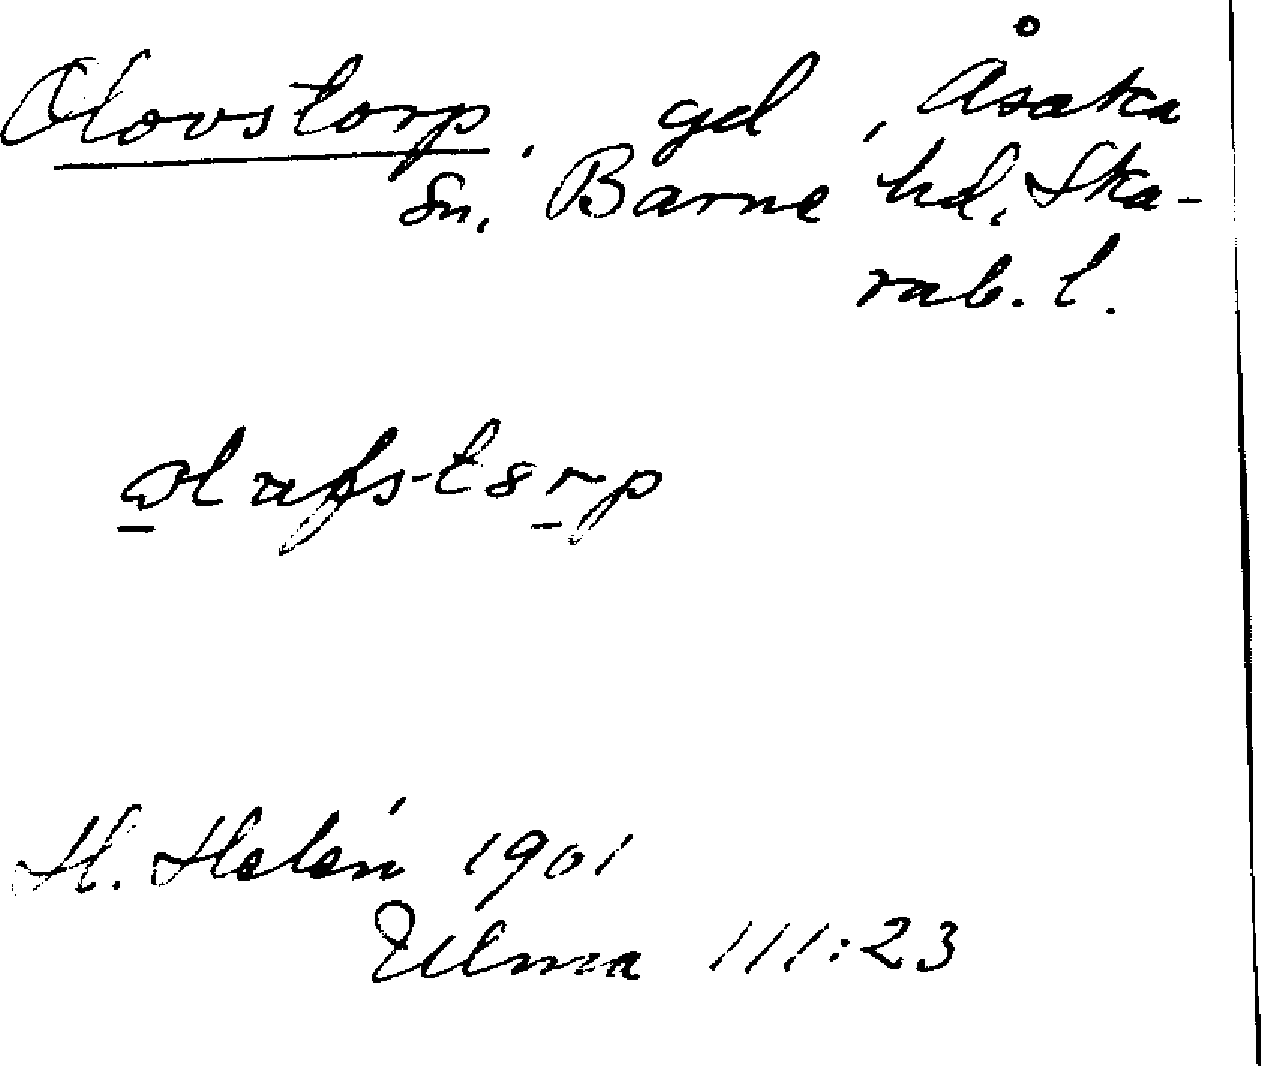 Olovstorp, gd, Åsaka
sn, Barne hd, Ska-
rab. l.
H. Helén 1901
Ulma 111:23